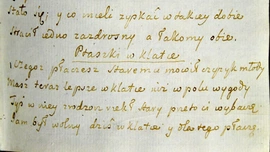 stało się; y co mieli zyskać w takey dobie
stracił jedno zazdrosny a łakomy obie.
Ptaszki w klatce
Czegoż płaczesz staremu mowił czyżyk młody
Masz teraz lepsze w klatce niż w polu wygody
Tyś w niey zrodzon rzekł stary przeto ci wybaczę
Jam był wolny dziś w klatce y dla tego płaczę.